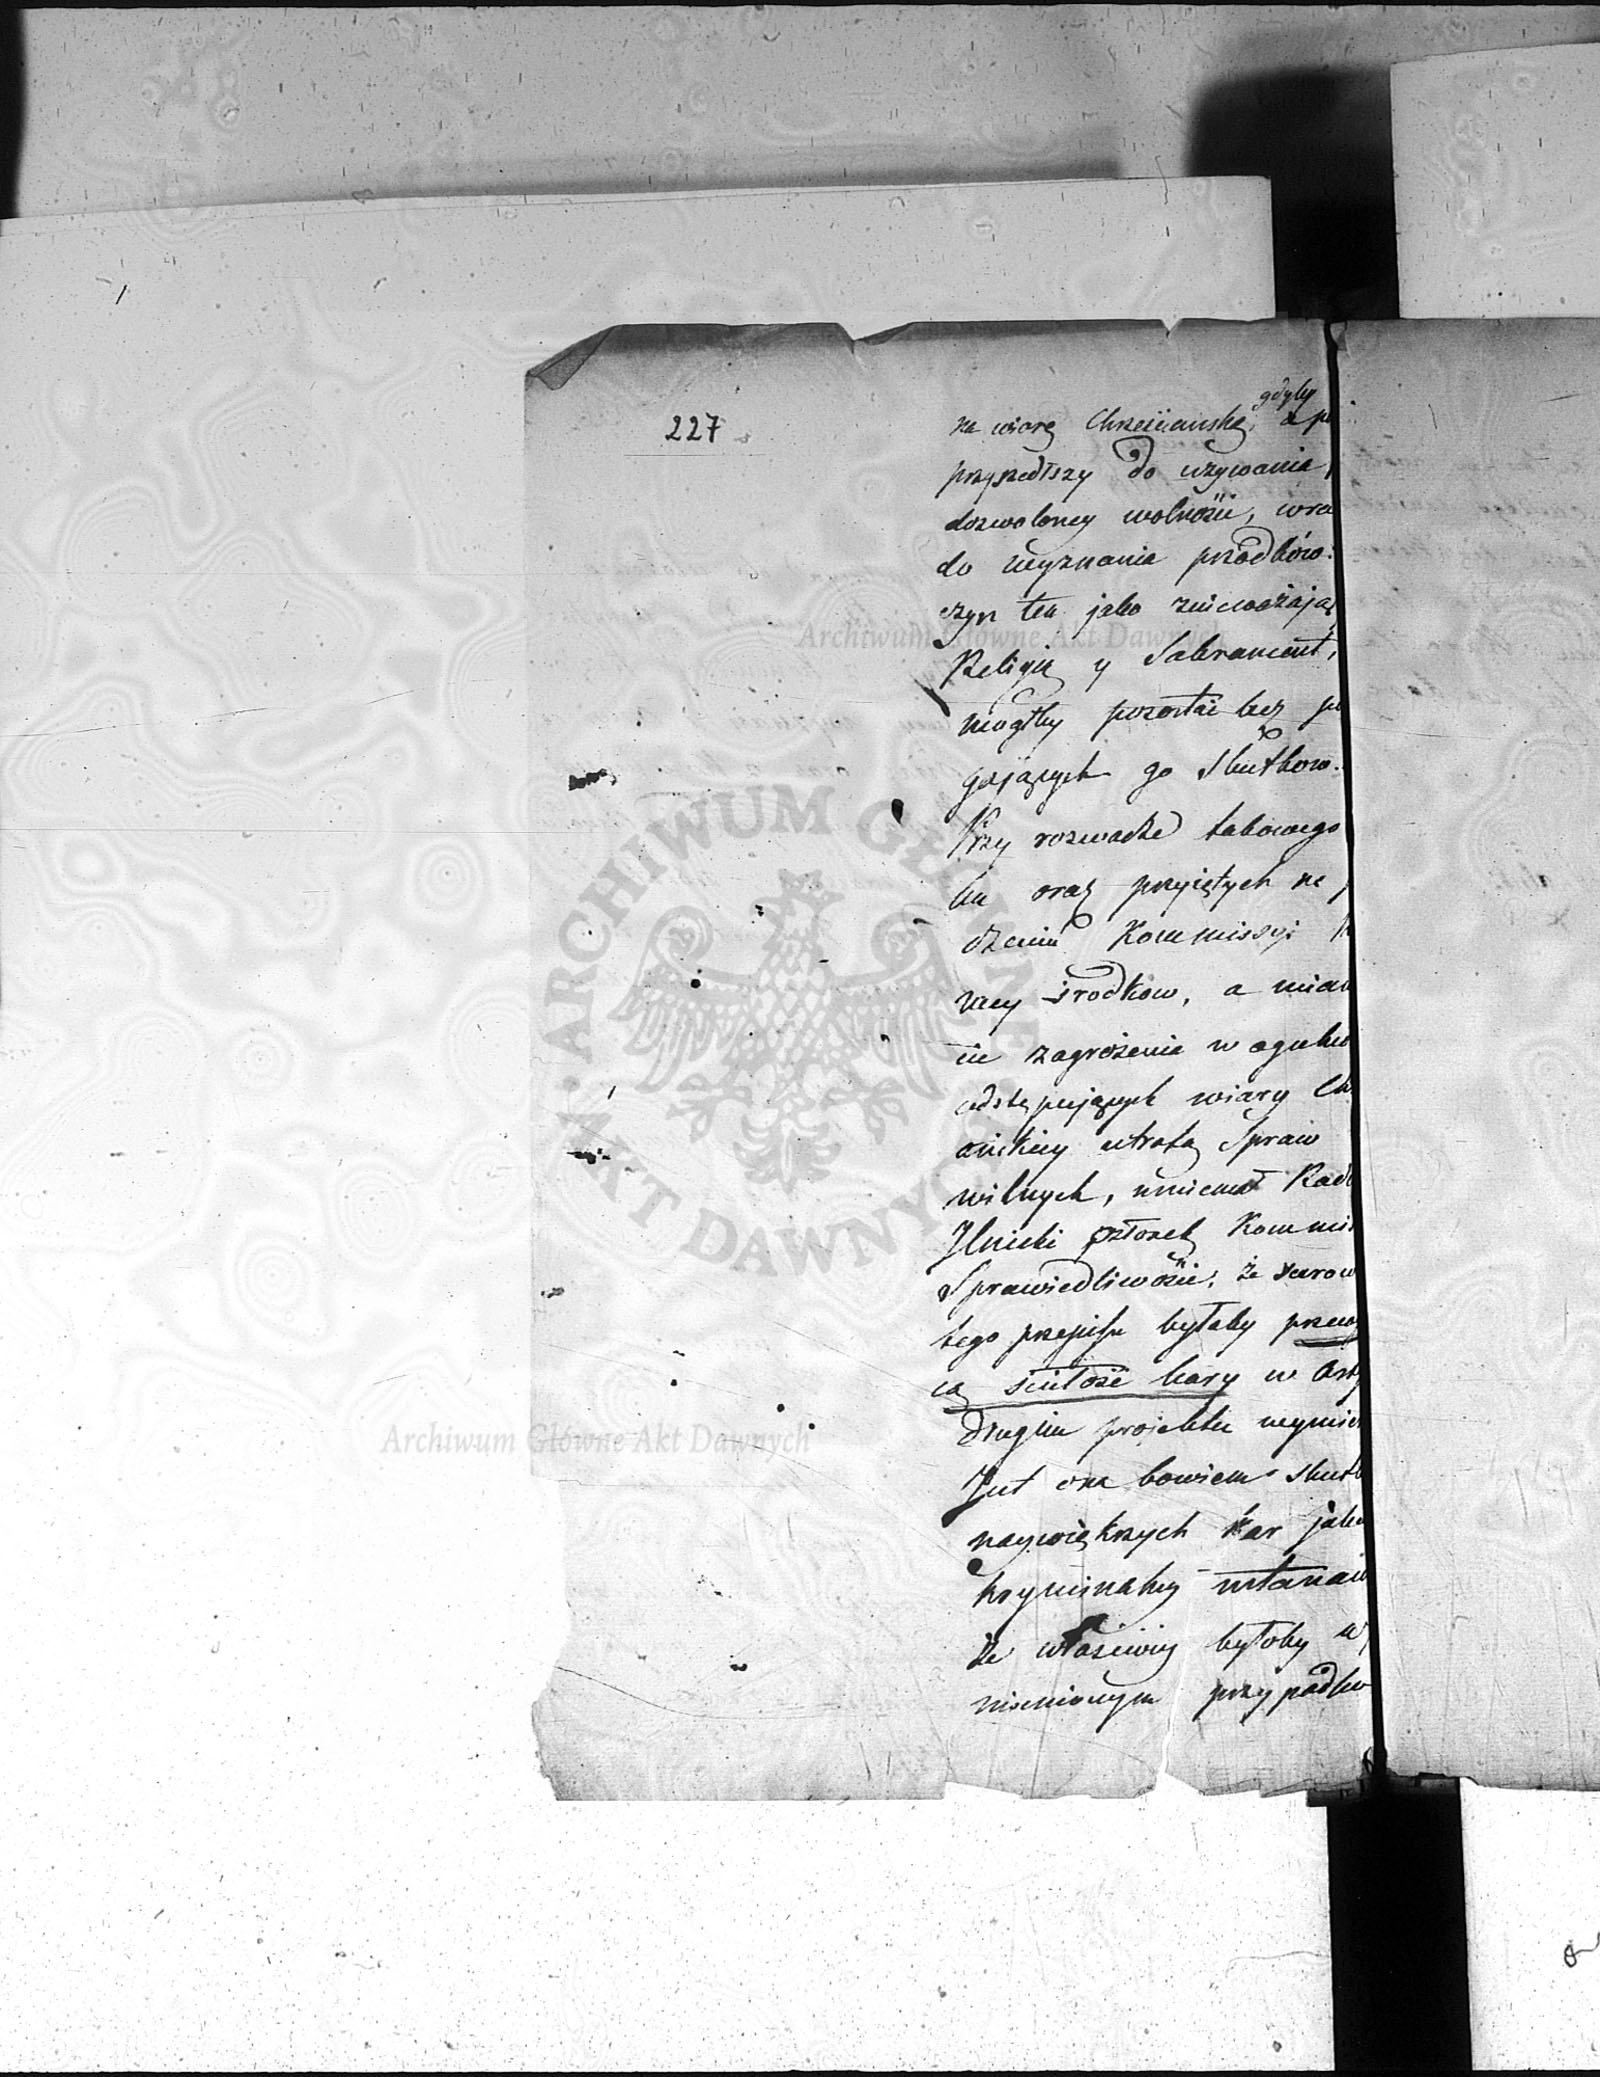 227
gdyby
na wiarę Chrześciańską, a po
przyszedłszy do używania
dozwoloney wolności, wra
do wyznania przodków:
czyn ten jako znieważają
Religię y Sakrament,
mógłby pozostać bez po
gających go skutkow.
Przy rozwadze takowego
ku oraz przyiętych na
dzeniu Kommissyi
ney środkow, a mian
cie zagrożenia w ogulno
odstępujących wiary Ch
ańskiey utratą Spraw
wilnych, uniemał Rad
Ilnicki członek Kommis
Sprawiedliwości, że surow
tego przepisu byłaby przew
cą ścisłość kary w Arty
drugim projektu wymie
Jest ona bowiem skutk
naywiększych kar jako
kryminalney ustanaw
że właściwiey byłoby w
mienionym przypadku
Archiwum Główne Akt Dawnych
ARCHIWUM GŁÓWNE AKT DAWNYCH
Archiwum Główne Akt Dawnych